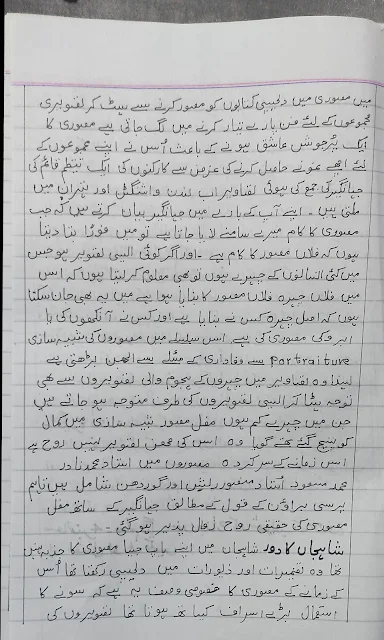 میں مصوری میں دلچسپی کتابوں کو مصور کرنے سے ہٹ کر تصویری
مجموعوں کے لئے فن پارے تیار کرنے میں لگ جاتی ہے مصوری کا
ایک پُرجوش عاشق ہونے کے باعث اُس نے اپنے مجموعوں کے
لئے اچھے نمونے حاصل کرنے کی غرض سے کارکنوں کی ایک تنظیم قائم کی
جہانگیر کی جمع کی ہوئی تصاویر اب لندن واشنگٹن اور تہران میں
ملتی ہیں۔ اپنے آپ کے بارے میں جہانگیر بیان کرتے ہیں کہ جب
مصوری کا کام میرے سامنے لایا جاتا ہے تو میں فوراً بتا دیتا
ہوں کہ فلاں مصور کا کام ہے۔ اور اگر کوئی ایسی تصویر ہو جس
میں کئی انسانوں کے چہرے ہوں تو بھی معلوم کر لیتا ہوں کہ اس
میں فلاں چہرہ فلاں مصور کا بنایا ہوا ہے میں یہ بھی جان سکتا
ہوں کہ اصل چہرہ کس نے بنایا ہے اور کس نے آنکھوں کی یا
ابرو کی مصوری کی ہے۔ اس سلسلے میں مصوروں کی شبیہ سازی
Portraiture سے وفاداری کے مسئلے سے الجھن بڑھتی ہے
لہذا وہ تصاویر میں چہروں کے ہجوم والی تصویروں سے بھی
توجہ ہٹا کر ایسی تصویروں کی طرف متوجہ ہو جاتے ہیں
جس میں چہرے کم ہوں مغل مصور شبیہ سازی میں کمال
کو پہنچ گئے تھے گویا وہ اس کی محض تصویر نہیں روح ہے
اس زمانے کے سرکردہ مصوروں میں استاد محمد نادر
محمد مسعود، استاد منصور، بشن اور گوردھن شامل ہیں تاہم
پرسی براؤن کے قول کے مطابق جہانگیر کے ساتھ مغل
مصوری کی حقیقی روح زوال پذیر ہو گئی۔
شاہجہاں کا دور شاہجہاں میں اپنے باپ جیسا مصوری کا جذبہ نہیں
تھا وہ تعمیرات اور زیورات میں دلچسپی رکھتا تھا اُس
کے زمانے کے مصوری کا خصوصی وصف یہ ہے کہ سونے کا
استعمال بڑے اسراف کیساتھ ہوتا تھا تصویروں کی